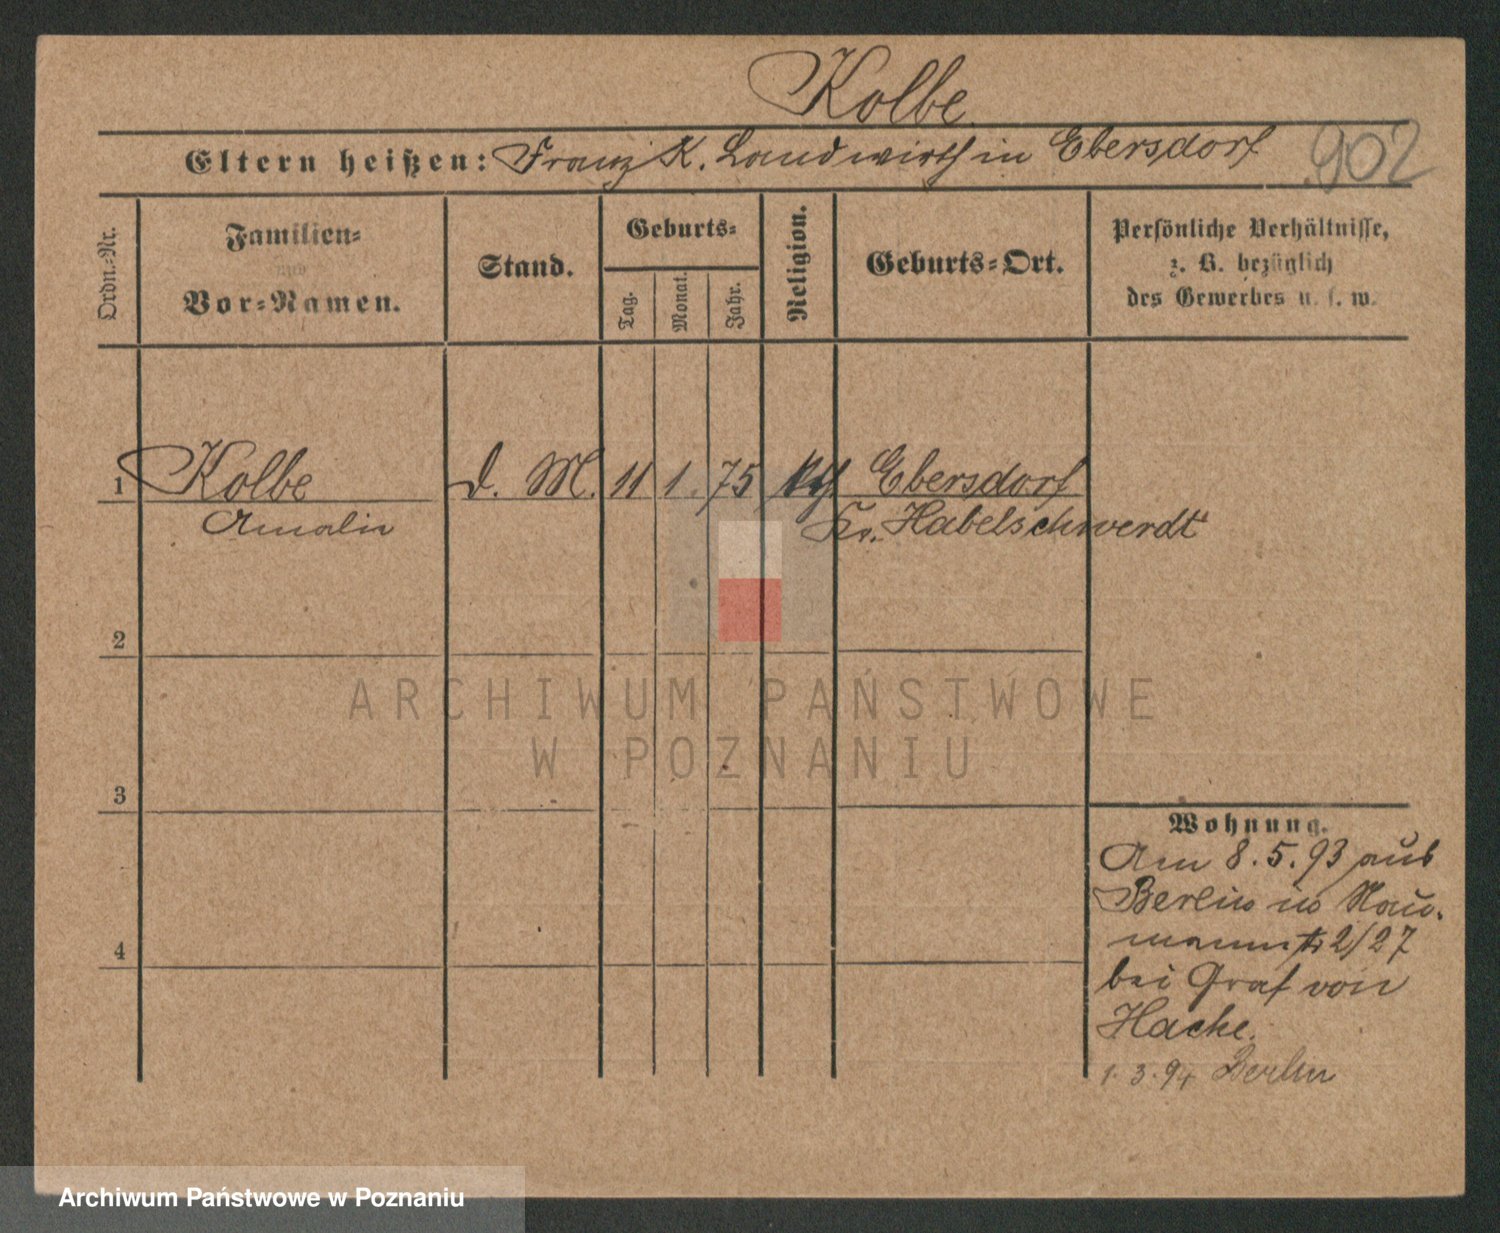 Kolbe
Eltern heißen: Franz K. Landwirth in Ebersdorf 902
Ordn.-Nr.
Familien-
und
Vor-Namen.
Stand.
Geburts-
Tag.
Monat.
Jahr.
Religion.
Geburts-Ort.
Persönliche Verhältnisse,
z. B. bezüglich
des Gewerbes u. s. w.
1 Kolbe d. M. 11 1. 75 kth Ebersdorf
Amalie Kr. Habelschwerdt
2
ARCHIWUM PAŃSTWOWE
W POZNANIU
3
Wohnung.
Am 8.5.93 aus
Berlin in Nau-
mannstr 2/27
4
bei Graf von
Hacke.
1.3.94 Berlin
Archiwum Państwowe w Poznaniu